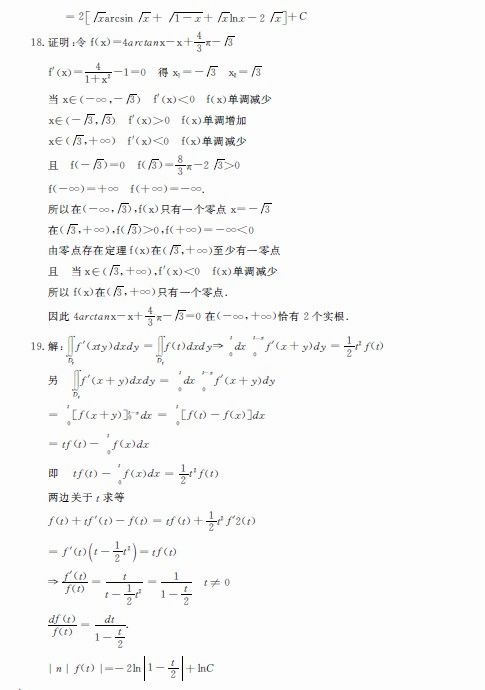 = 2[√x arcsin √x + √1−x + √x lnx − 2 √x] + C
18. 证明:令 f(x)=4arctanx−x+4/3π−√3
f′(x)=4/1+x²−1=0 得 x₁=−√3 x₂=√3
当 x∈(−∞,−√3) f′(x)<0 f(x)单调减少
x∈(−√3,√3) f′(x)>0 f(x)单调增加
x∈(√3,+∞) f′(x)<0 f(x)单调减少
且 f(−√3)=0 f(√3)=8/3π−2 √3>0
f(−∞)=+∞ f(+∞)=−∞.
所以在(−∞,√3),f(x)只有一个零点 x=−√3
在(√3,+∞),f(√3)>0,f(+∞)=−∞<0
由零点存在定理 f(x)在(√3,+∞)至少有一零点
且 当 x∈(√3,+∞),f′(x)<0 f(x)单调减少
所以 f(x)在(√3,+∞)只有一个零点.
因此 4arctanx−x+4/3π−√3=0 在(−∞,+∞)恰有 2 个实根.
19. 解: ∬_Dt f′(xty)dxdy = ∬_Dt f(t)dxdy⇒ ₀ᵗ dx ₀ᵗ⁻ˣ f′(x+y)dy = 1/2 t² f(t)
另 ∬_Dt f′(x+y)dxdy = ₀ᵗ dx ₀ᵗ⁻ˣ f′(x+y)dy
= ₀ᵗ [f(x+y)]₀ᵗ⁻ˣ dx = ₀ᵗ [f(t)−f(x)]dx
= tf(t) − ₀ᵗ f(x)dx
即 tf(t) − ₀ᵗ f(x)dx = 1/2 t² f(t)
两边关于 t 求等
f(t) + tf′(t) − f(t) = tf(t) + 1/2 t² f′2(t)
= f′(t)(t − 1/2 t²) = tf(t)
⇒ f′(t)/f(t) = t/(t − 1/2 t²) = 1/(1 − t/2) t ≠ 0
df(t)/f(t) = dt/(1 − t/2).
| n | f(t) |=− 2ln|1 − t/2| + lnC